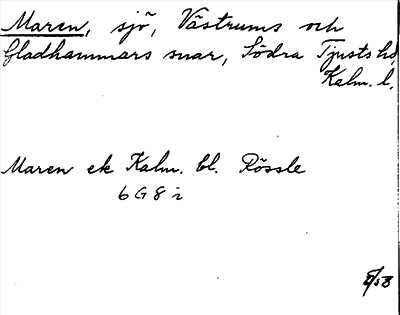 Maren, sjö, Västrums och
Gladhammars snar, Södra Tjusts hd,
Kalm. l.
Maren ek Kalm. bl. Rössle
6 G 8 i